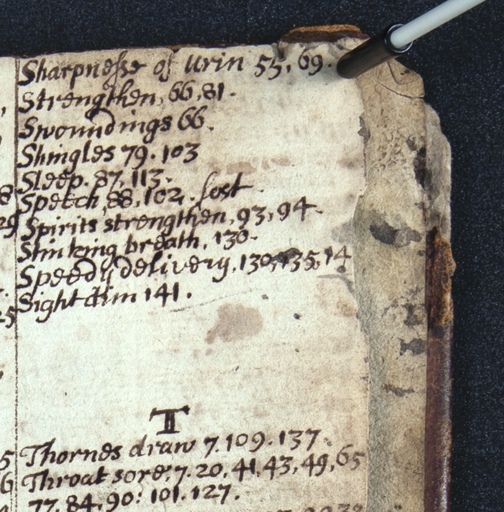 Sharpnesse of Urin 55, 69.
Strengthen, 66, 81.
Swoundings 66.
Shingles 79. 103
Sleep. 87, 113.
Speech, 88, 102. lost
Spirits strengthen, 93, 94.
Stinking breath, 130.
Speedy delivery, 130, 135, 14
Sight dim 141.
T
Thornes draw 7. 109. 137.
Throat sore, 7. 20, 41, 43, 49, 65
77, 84, 90: 101. 127.